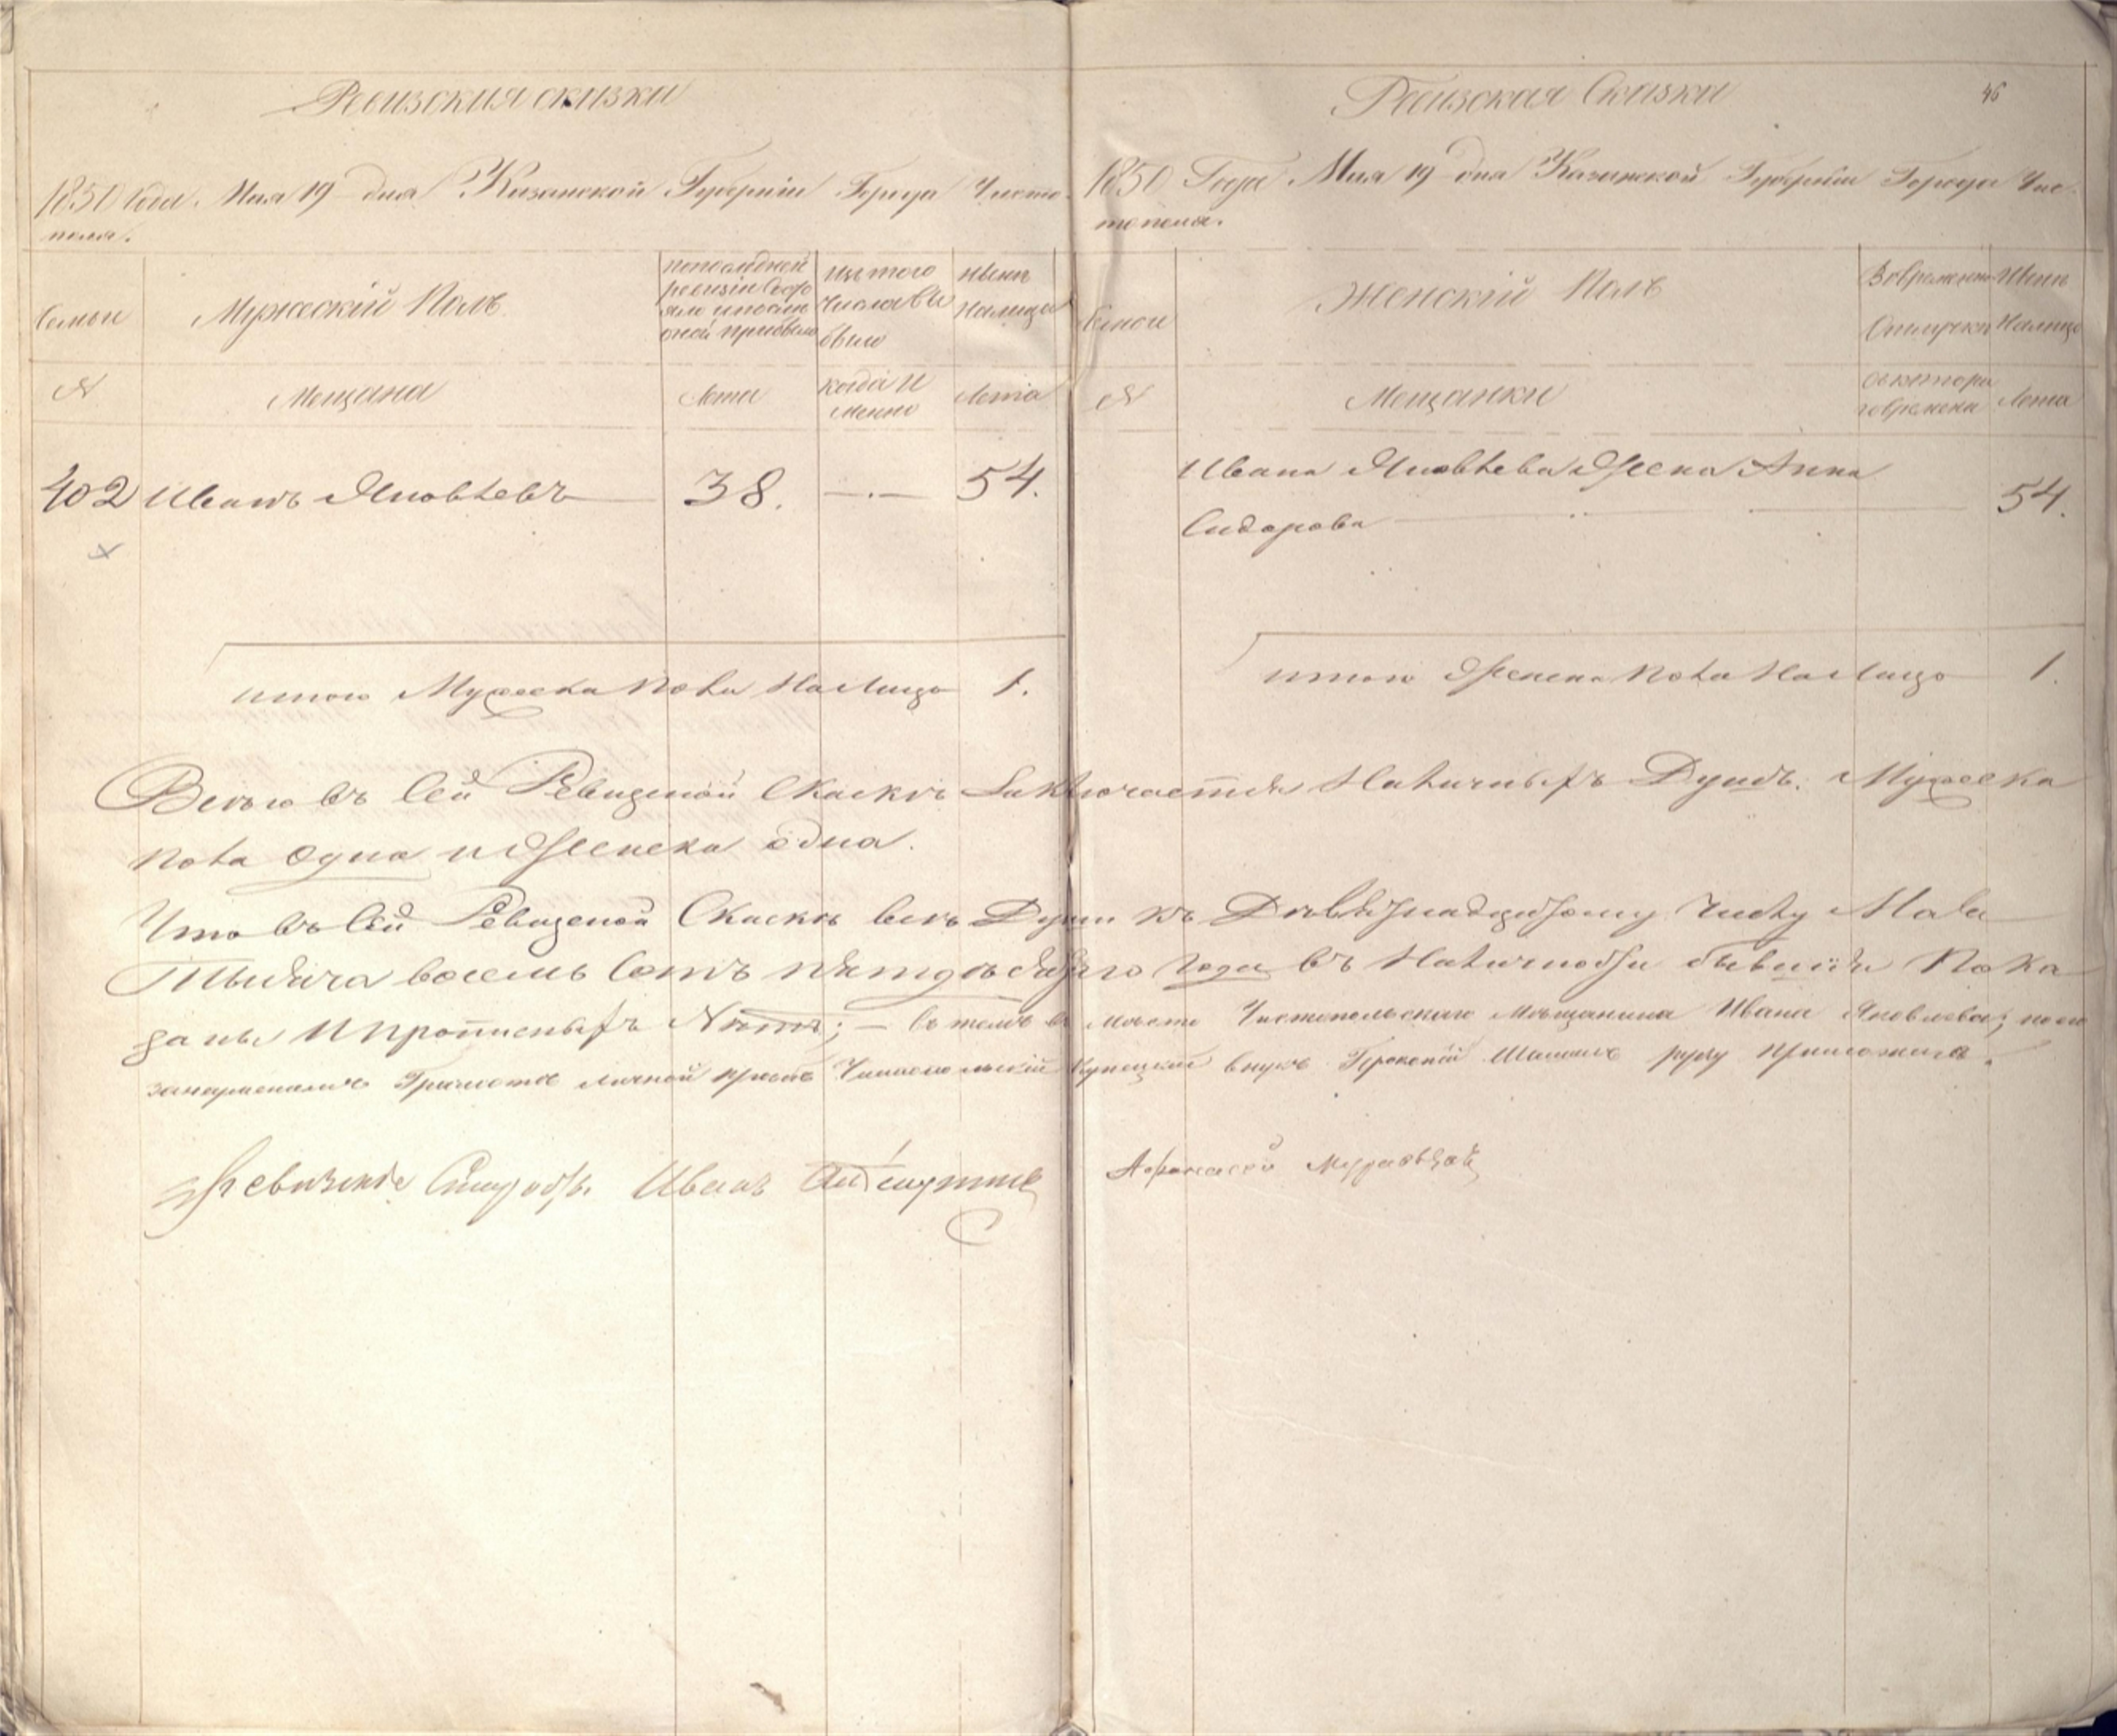 Ревизския сказки
1850 года Мая 19 дня Казанской Губернiи Города Чисто-
поля.
Семьи
Мужескiй Полъ
по последней
ревизiи состо
яло и после
оной прибыло
Изъ того
числа вы
было
Ныне
Налицо
N
Мещана
Лета
когда и
менно
Лета
402 Иванъ Яковлевъ 38. —.— 54.
итого Мужеска пола на лицо 1.
Ревизская Сказки
46
1850 Года Мая 19 дня Казанской Губернiи Города Чис-
тополя.
Семьи
Женскiй Полъ
Во временной
Отлучки
Ныне
Налицо
N
Мещанки
съ котора
го времени
Лета
Ивана Яковлева Жена Анна
Сидорова 54.
итого Женска пола на лицо 1.
Всего въ Сей Ревизской Скаске Заключается Наличныхъ Душъ: Мужеска
пола Одна и Женска одна.
Что въ Сей Ревизской Скаске все Души къ Девятнадцатому Числу Мая
Тысяча восемь Сотъ пятдесятаго Года въ Наличности бывшiя Пока
заны И прописныхъ Нетъ; — въ томъ в место Чистопольскаго Мещанина Ивана Яковлева, по его
Грамоте личной прозбе Чистопольскiй Купецкiй внукъ Шашинъ руку приложилъ.
Иванъ
Афанасей